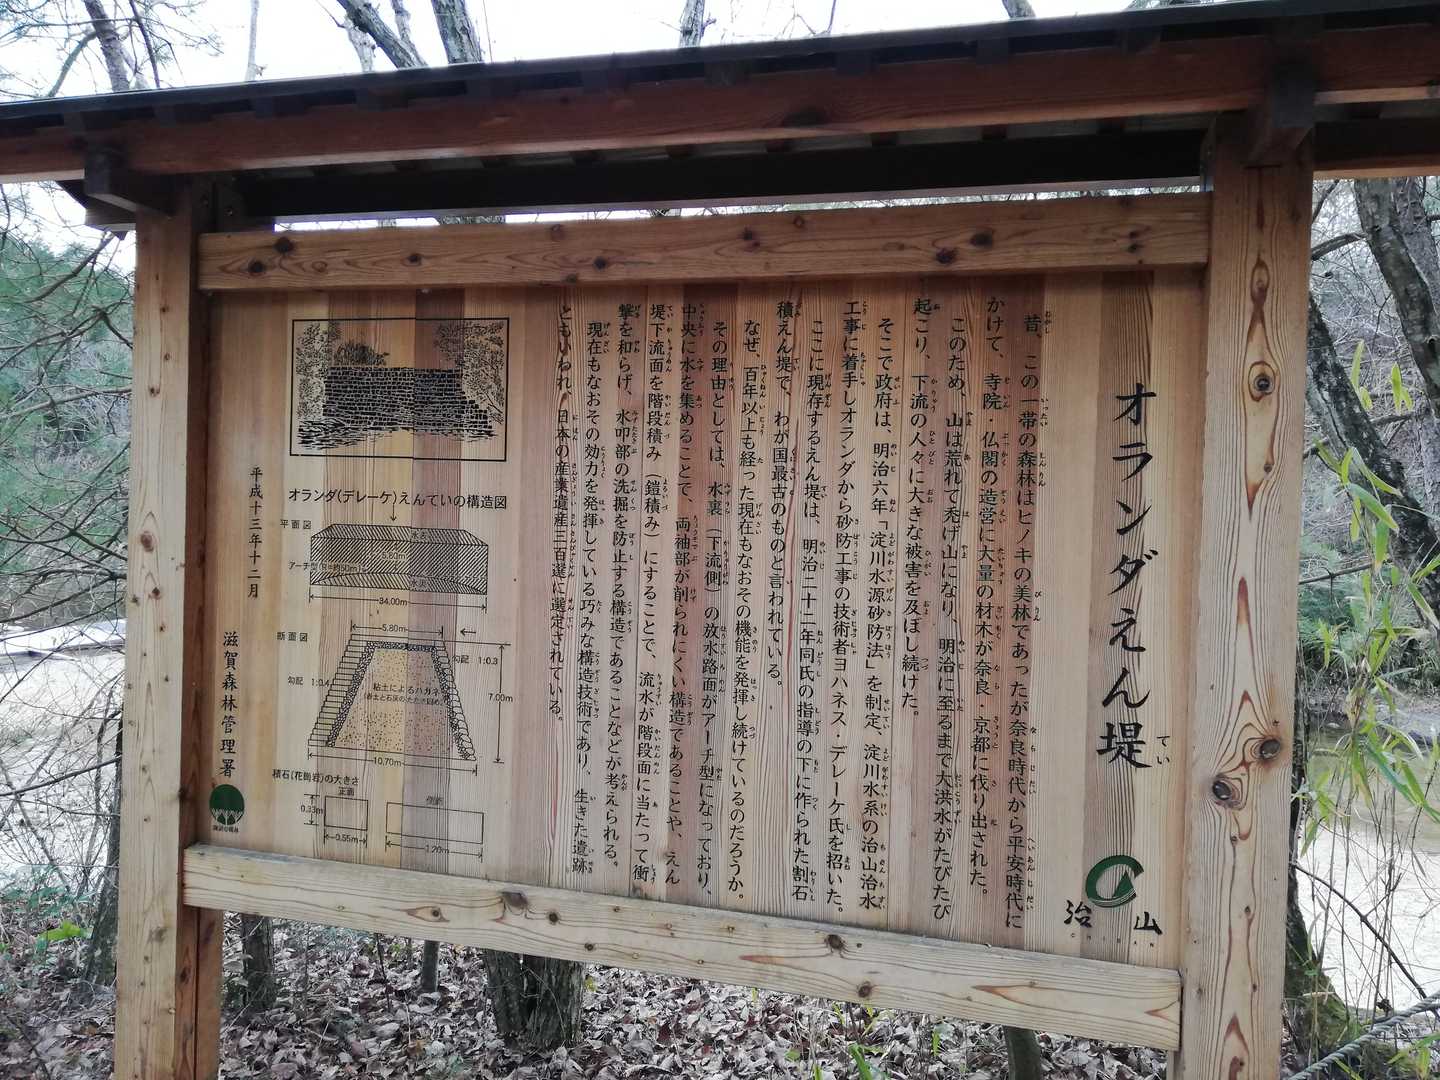 オランダえん堤
てい
昔、この一帯の森林はヒノキの美林であったが奈良時代から平安時代に
かけて、寺院・仏閣の造営に大量の材木が奈良・京都に伐り出された。
このため、山は荒れて禿げ山になり、明治に至るまで大洪水がたびたび
起こり、下流の人々に大きな被害を及ぼし続けた。
そこで政府は、明治六年「淀川水源砂防法」を制定、淀川水系の治山治水
工事に着手しオランダから砂防工事の技術者ヨハネス・デレーケ氏を招いた。
ここに現存するえん堤は、明治二十二年同氏の指導の下に作られた割石
積えん堤で、わが国最古のものと言われている。
なぜ、百年以上も経った現在もなおその機能を発揮し続けているのだろうか。
その理由としては、水裏（下流側）の放水路面がアーチ型になっており、
中央に水を集めることで、両袖部が削られにくい構造であることや、えん
堤下流面を階段積み（鎧積み）にすることで、流水が階段面に当たって衝
撃を和らげ、水叩部の洗掘を防止する構造であることなどが考えられる。
現在もなおその効力を発揮している巧みな構造技術であり、生きた遺跡
ともいわれ、日本の産業遺産三百選に選定されている。
治山
CHISAN
オランダ(デレーケ)えんていの構造図
平面図
水表
5.80m
アーチ型 R=約50m
水裏
34.00m
断面図
5.80m
勾配 1:0.3
勾配 1:0.4
粘土によるハガネ
7.00m
10.70m
積石(花崗岩)の大きさ
正面
側面
0.33m
0.55m
1.20m
平成十三年十二月
滋賀森林管理署